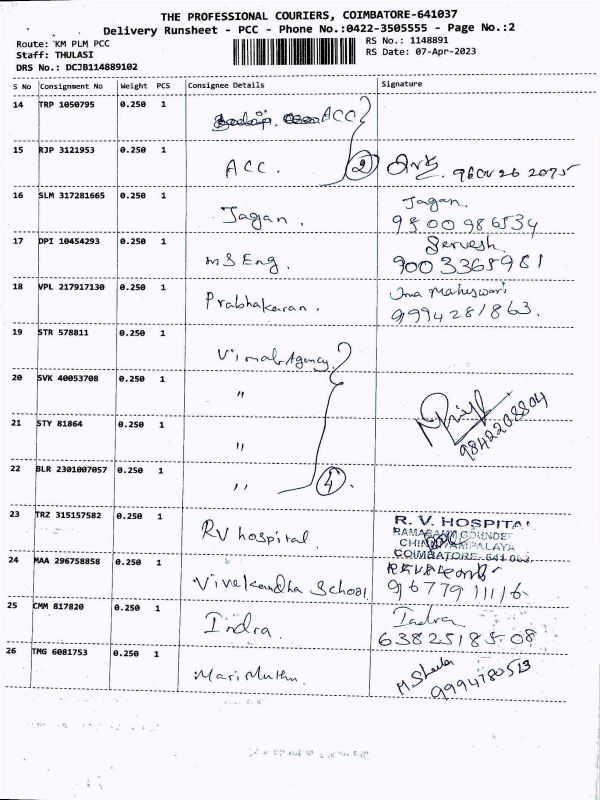 THE PROFESSIONAL COURIERS, COIMBATORE-641037
Delivery Runsheet - PCC - Phone No.:0422-3505555 - Page No.:2
Route: KM PLM PCC
RS No.: 1148891
Staff: THULASI
RS Date: 07-Apr-2023
DRS No.: DCJB114889102
S No Consignment No Weight PCS Consignee Details Signature
14 TRP 1050795 0.250 1 ACC
15 RJP 3121953 0.250 1 ACC. 2
16 SLM 317281665 0.250 1 Jagan. Jagan.
9500986534
17 DPI 10454293 0.250 1 MS Eng. Servesh
9003365981
18 VPL 217917130 0.250 1 Prabhakaran. Uma Maheswari
9994281863.
19 STR 578811 0.250 1 Vimal Agency
20 SVK 40053708 0.250 1 "
21 STY 81864 0.250 1 "
9842208804
22 BLR 2301007057 0.250 1 " 4.
23 TRZ 315157582 0.250 1 RV hospital. R. V. HOSPITAL
COIMBATORE-641
24 MAA 296758858 0.250 1 Vivekandha School
9677911116
25 CMM 817820 0.250 1 Indra. Indra
6382518508
26 TMG 6081753 0.250 1 MariMuthu M. Sheela
9994780513